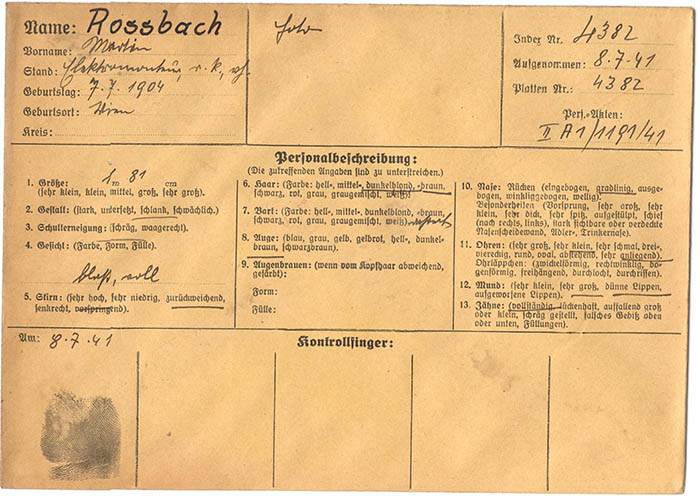 Name: Rossbach
Vorname: Martin
Stand: Elektromonteur, r. k., vh.
Geburtstag: 7. 7. 1904
Geburtsort: Wien
Kreis:
Foto
Index Nr. 4382
Aufgenommen: 8.7.41
Platten Nr.: 4382
Pers.-Akten:
II A1/1191/41
Personalbeschreibung:
(Die zutreffenden Angaben sind zu unterstreichen.)
1. Größe: 1 m 81 cm
(sehr klein, klein, mittel, groß, sehr groß).
2. Gestalt: (stark, untersetzt, schlank, schwächlich).
3. Schulterneigung: (schräg, waagerecht).
4. Gesicht: (Farbe, Form, Fülle).
blaß, voll
5. Stirn: (sehr hoch, sehr niedrig, zurückweichend,
senkrecht, vorspringend).
6. Haar: (Farbe: hell-, mittel-, dunkelblond, -braun,
schwarz, rot, grau, graugemischt, weiß).
7. Bart: (Farbe: hell-, mittel-, dunkelblond, -braun,
schwarz, rot, grau, graugemischt, weiß).
8. Auge: (blau, grau, gelb, gelbrot, hell-, dunkel-
braun, schwarzbraun).
9. Augenbrauen: (wenn vom Kopfhaar abweichend,
gefärbt):
Form:
Fülle:
10. Nase: Rücken (eingebogen, gradlinig, ausge-
bogen, winkliggebogen, wellig).
Besonderheiten (Vorsprung, sehr groß, sehr
klein, sehr dick, sehr spitz, aufgestülpt, schief
(nach rechts, links), stark sichtbare oder verdeckte
Nasenscheidewand, Adler-, Trinkernase).
11. Ohren: (sehr groß, sehr klein, sehr schmal, drei-,
viereckig, rund, oval, abstehend, sehr anliegend).
Ohrläppchen: (zwickelförmig, rechtwinklig, bo-
genförmig, freihängend, durchlocht, durchrissen).
12. Mund: (sehr klein, sehr groß, dünne Lippen,
aufgeworfene Lippen).
13. Zähne: (vollständig, lückenhaft, auffallend groß
oder klein, schräg gestellt, falsches Gebiß oben
oder unten, Füllungen).
Am: 8.7.41
Kontrollfinger: